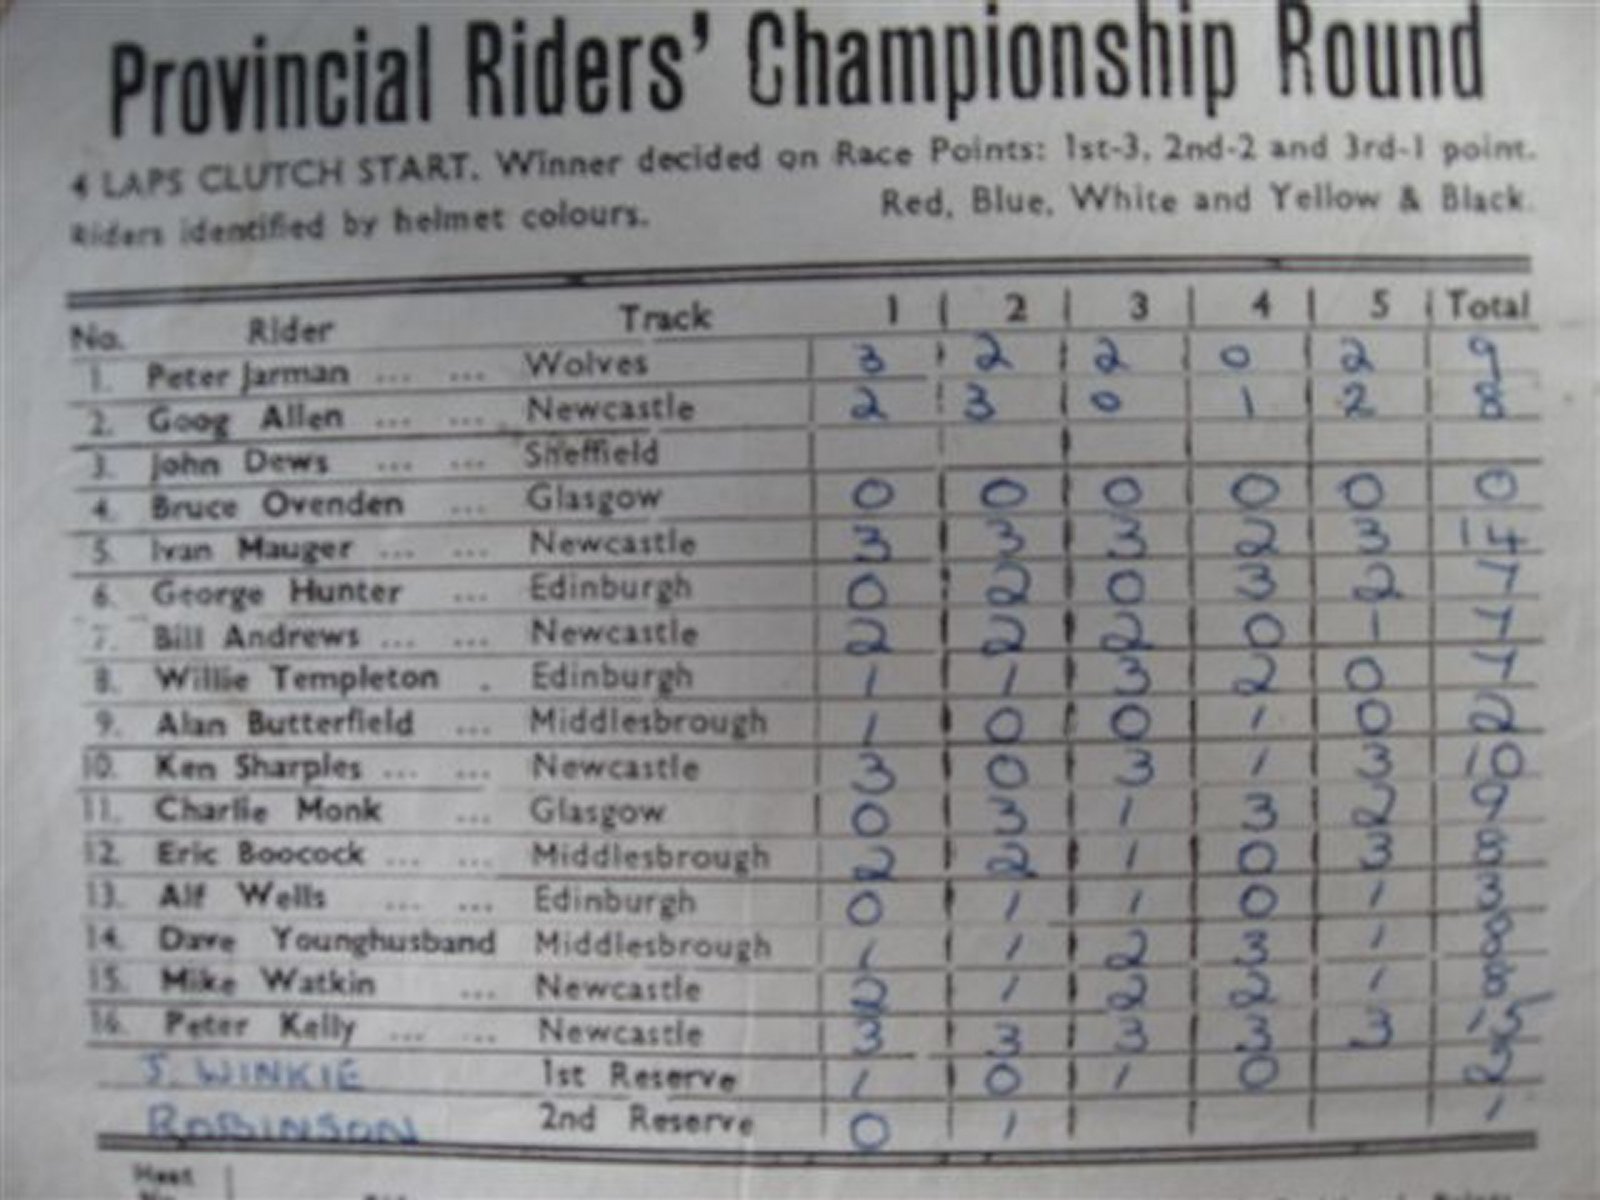 Provincial Riders' Championship Round
4 LAPS CLUTCH START. Winner decided on Race Points: 1st-3, 2nd-2 and 3rd-1 point.
Riders identified by helmet colours. Red, Blue, White and Yellow & Black.
No. Rider Track 1 2 3 4 5 Total
1. Peter Jarman ... ... Wolves 3 2 2 0 2 9
2. Goog Allen ... ... Newcastle 2 3 0 1 2 8
3. John Dews ... ... Sheffield
4. Bruce Ovenden ... Glasgow 0 0 0 0 0 0
5. Ivan Mauger ... ... Newcastle 3 3 3 2 3 14
6. George Hunter ... Edinburgh 0 2 0 3 2 7
7. Bill Andrews ... ... Newcastle 2 2 2 0 1 7
8. Willie Templeton . Edinburgh 1 1 3 2 0 7
9. Alan Butterfield ... Middlesbrough 1 0 0 1 0 2
10. Ken Sharples ... ... Newcastle 3 0 3 1 3 10
11. Charlie Monk ... Glasgow 0 3 1 3 2 9
12. Eric Boocock ... ... Middlesbrough 2 2 1 0 3 8
13. Alf Wells ... ... Edinburgh 0 1 1 0 1 3
14. Dave Younghusband Middlesbrough 1 1 2 3 1 8
15. Mike Watkin ... Newcastle 2 1 2 2 1 8
16. Peter Kelly ... ... Newcastle 3 3 3 3 3 15
J. WINKIE 1st Reserve 1 0 1 0 2
ROBINSON 2nd Reserve 0 1 1
Heat